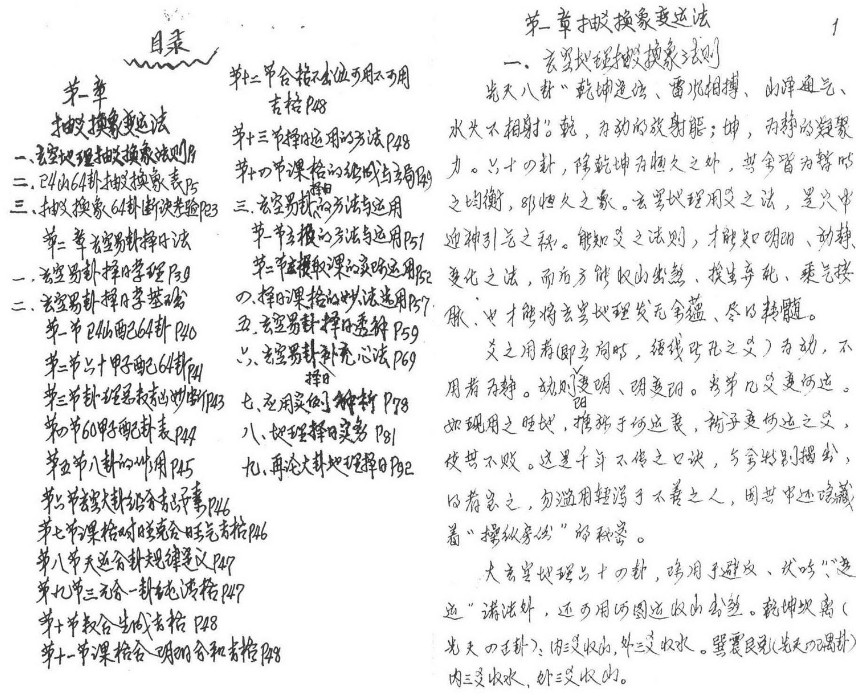 目录
第一章
抽爻换象变运法
一、玄空地理抽爻换象法则P1
二、24山64卦抽爻换象表P5
三、抽爻换象64卦断诀考验P23
第二章玄空易卦择日法
一、玄空易卦择日学理P39
二、玄空易卦择日学基础
第一节24山配64卦P40
第二节六十甲子配64卦P41
第三节卦理 P43
第四节60甲子配卦表P44
第五节八卦的作用P45
第六节玄空大卦 P46
第七节课格 旺气吉格P46
第八节天运合卦规律定义P47
第九节三元合一卦纯清格P47
第十节数合生成吉格 P48
第十一节课格合 阴阳合和吉格P48
第十二节合格不出位可用不可用
吉格P48
第十三节择日运用的方法P48
第十四节课格的组成与立局P49
三、玄空易卦择日的方法与运用
第一节主 的方法与运用P51
第二节 取课的实际运用P52
四、择日课格的妙法选用P57
五、玄空易卦择日透解P59
六、玄空易卦择日补充心法P69
七、应用实例解析P78
八、地理择日实务P81
九、再论大卦地理择日P92
第一章抽爻换象变运法 1
一、玄空地理抽爻换象法则
先天八卦“乾坤定位、雷风相搏、山泽通气、
水火不相射”。乾，为动的放射能；坤，为静的凝聚
力。六十四卦，除乾坤为恒久之外，其余皆为暂时
之均衡，非恒久之象。玄空地理用爻之法，是穴中
迎神引气之秘。能知爻之法则，才能知阴阳、动静、
变化之法，而后方能收山出煞、挨生弃死、乘气接
脉，也才能将玄空地理发无余蕴、尽得精髓。
爻之用者（即立向时，纽线所孔之爻）为动，不
用者为静。动则变，阳变阴、阴变阳。当第几爻变何运。
如现用之旺地，推移于何运衰，抽予变何运之爻，
使其不败。这是千年不传之口诀，今余特别揭出，
得者宝之，勿滥用轻泻于不善之人，因其中还隐藏
着“操纵房份”的秘密。
大玄空地理六十四卦，除用于避反、伏吟“变
运”诸法外，还可用河图运收山出煞。乾坤坎离（
先天四正卦）：内三爻收山，外三爻收水。巽震艮兑（先天四隅卦）
内三爻收水，外三爻收山。